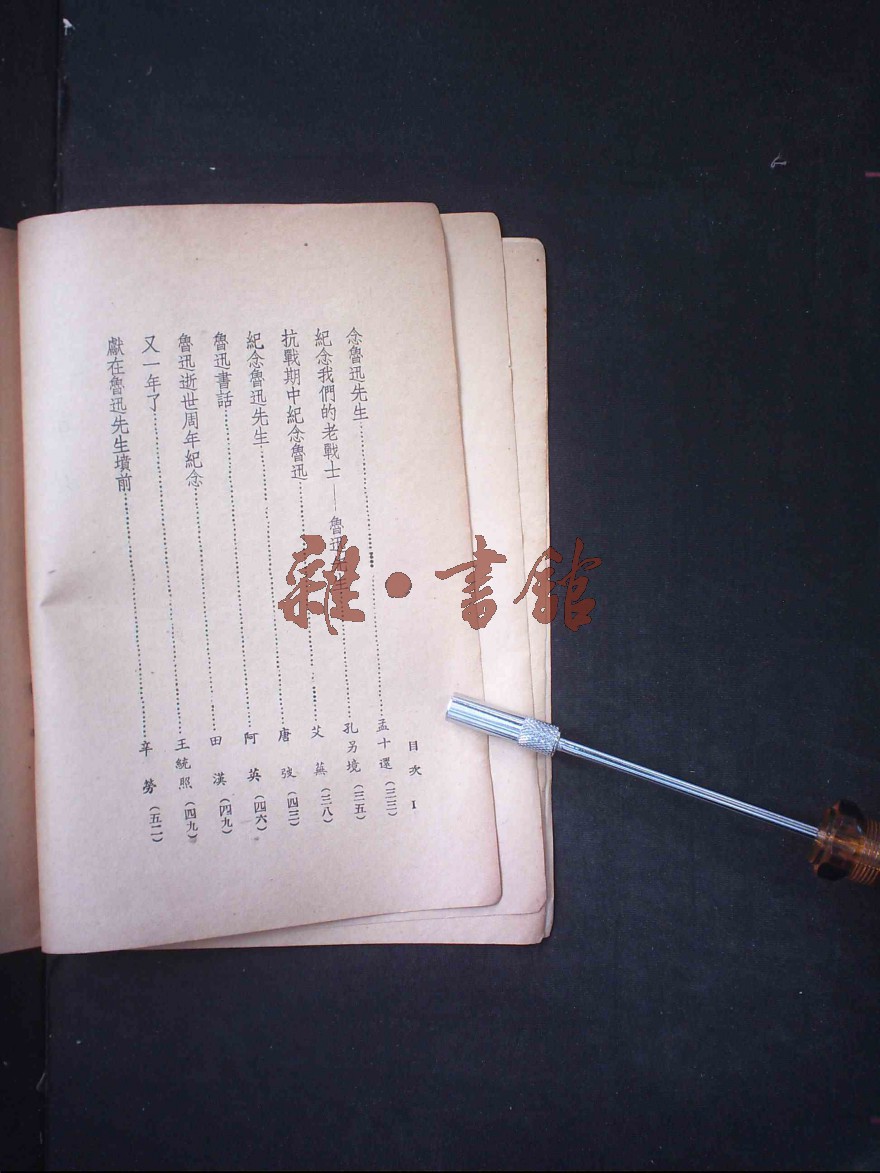 目次 I
念魯迅先生……孟十還(三三)
紀念我們的老戰士——魯迅先生……孔另境(三五)
抗戰期中紀念魯迅……艾蕪(三八)
紀念魯迅先生……唐弢(四三)
魯迅書話……阿英(四六)
魯迅逝世周年紀念……田漢(四九)
又一年了……王統照(四九)
獻在魯迅先生墳前……辛勞(五二)
雜·書館